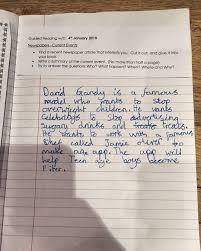 Guided Reading w/b: 4th January 2018
Newspapers - Current Events
• Find a recent newspaper article that interests you. Cut it out, and glue it into your book.
• Write a summary of the current event. (No more than half a page)
• Try to answer the questions Who? What happened? When? Where and Why?
David Gandy is a famous
model who wants to stop
overweight children. He wants
celebritys to stop advertising
sugary drinks and treats.
He wants to work with a famous
Chef called Jamie Oliver to
make app. The app will
help Teen age boys become
Fiter.